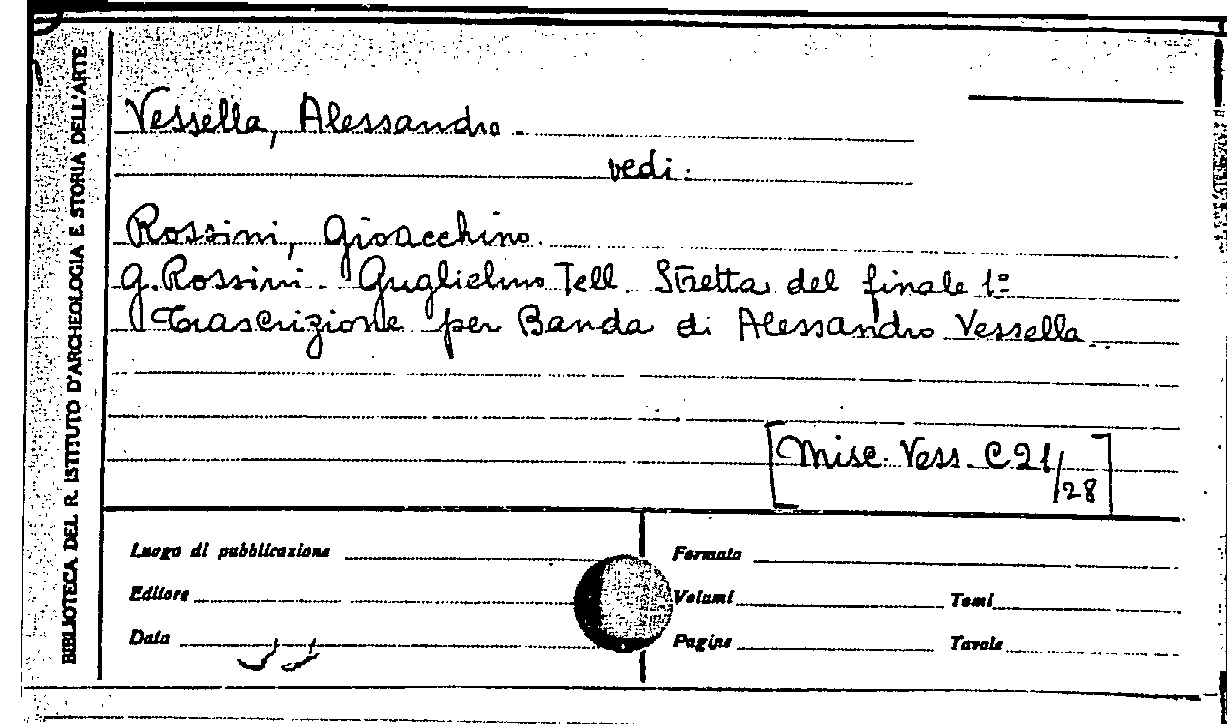 BIBLIOTECA DEL R. ISTITUTO D'ARCHEOLOGIA E STORIA DELL'ARTE
Vessella, Alessandro.
vedi:
Rossini, Gioacchino.
G. Rossini. Guglielmo Tell. Stretta del finale 1º
Trascrizione per Banda di Alessandro Vessella.
[Misc. Vess. C 21/28]
Luogo di pubblicazione
Formato
Editore
Volumi
Tomi
Data
Pagine
Tavole